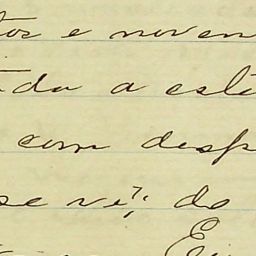 tos e noven
ida a esti
com desp
se vê, do